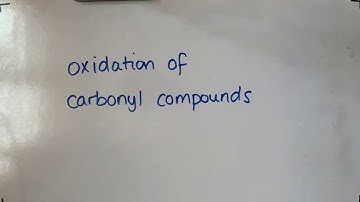 oxidation of
carbonyl compounds